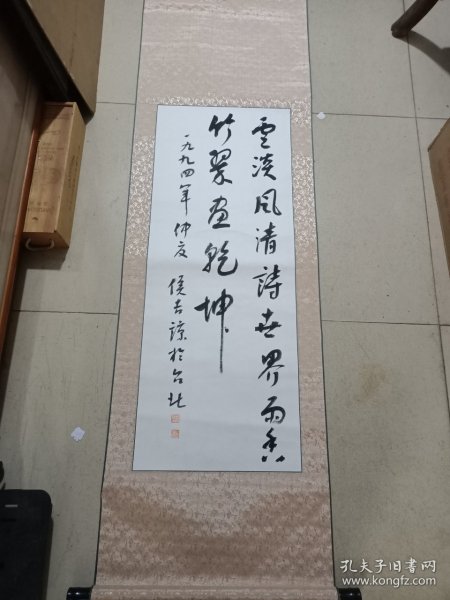 雲淡風清詩世界雨香
竹翠畫乾坤
一九九四年仲夏 侯吉諒於台北
孔夫子旧书网
www.kongfz.com